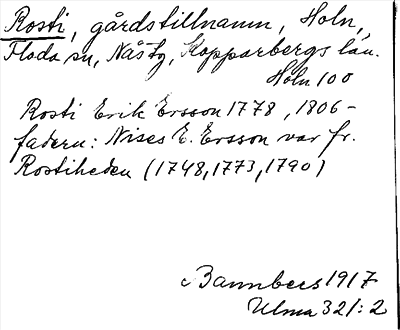 Rosti, gårdstillnamn, Holn,
Floda sn, Nås tg, Kopparbergs län.
Holn 100
Rosti Erik Ersson 1778, 1806-
fadern: Nises E. Ersson var fr.
Rostiheden (1748, 1773, 1790)
Bannbers 1917
Ulma 321:2